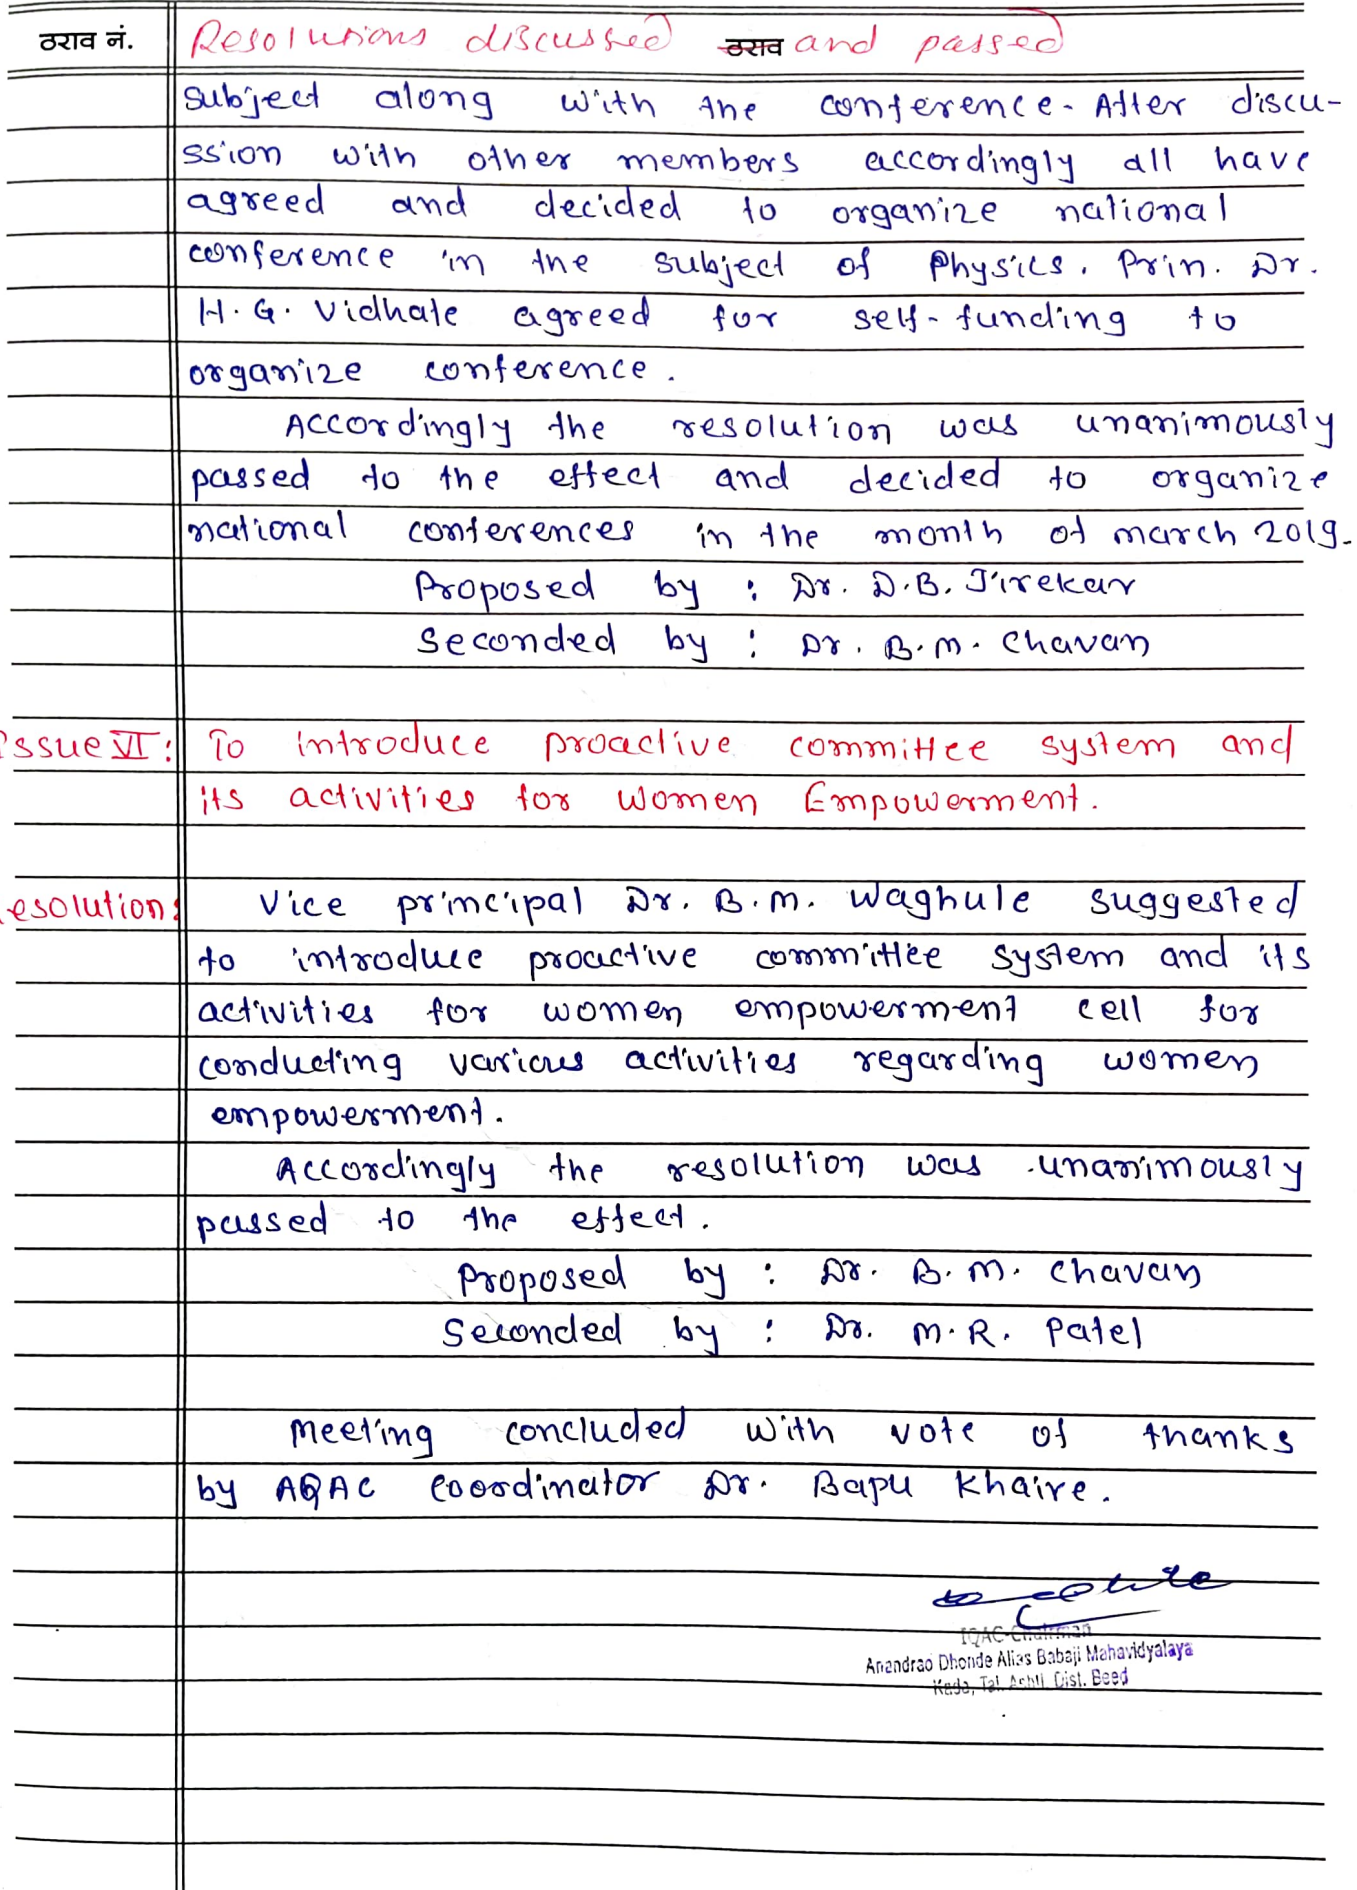 ठराव नं. Resolutions discussed ठराव and passed
subject along with the conference. After discu-
ssion with other members accordingly all have
agreed and decided to organize national
conference in the subject of Physics. Prin. Dr.
H. G. Vidhate agreed for self-funding to
organize conference.
Accordingly the resolution was unanimously
passed to the effect and decided to organize
national conferences in the month of march 2019.
Proposed by : Dr. D.B. Jirekar
Seconded by : Dr. B.M. Chavan
issue VI : To introduce proactive committee system and
its activities for women Empowerment.
esolution: Vice principal Dr. B.M. Waghule suggested
to introduce proactive committee system and its
activities for women empowerment cell for
conducting various activities regarding women
empowerment.
Accordingly the resolution was unanimously
passed to the effect.
Proposed by : Dr. B.M. Chavan
Seconded by : Dr. M.R. Patel
Meeting concluded with vote of thanks
by AQAC coordinator Dr. Bapu Khaire.
IQAC-Chairman
Anandrao Dhonde Alias Babaji Mahavidyalaya
Kada, Tal. Ashti Dist. Beed